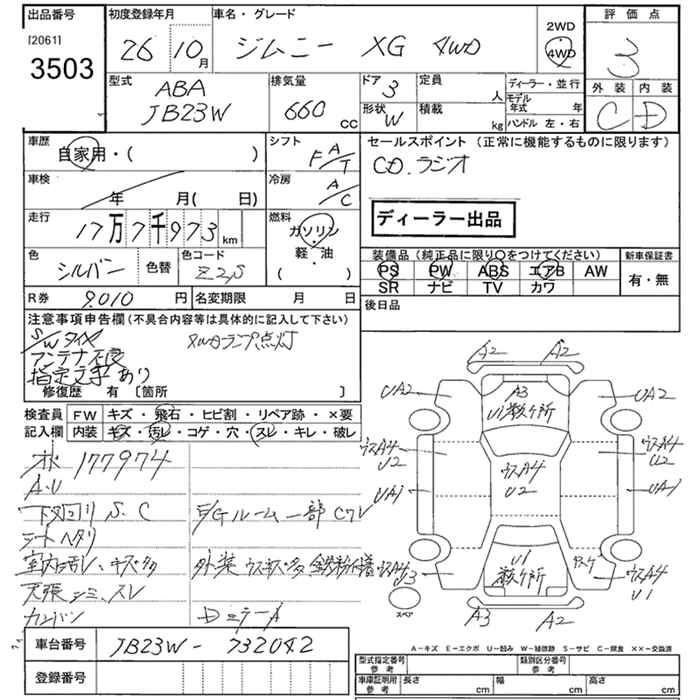 出品番号 初度登録年月 車名・グレード 2WD 評価点
[2061] 26 10月 ジムニー XG 4WD 4WD 3
3503 外装 内装
型式 ABA JB23W 排気量 660 cc ドア 3 定員 人 ディーラー・並行 C D
形状 W 積載 kg モデル年式 年
ハンドル 左・右
車歴 自家用・( ) シフト F A/T セールスポイント (正常に機能するものに限ります)
CD.ラジオ
車検 年 月( 日) 冷房 A/C
走行 17万7千973 km 燃料 ガソリン・軽・油 ( )
ディーラー出品
色 シルバー 色替 色コード Z2S
装備品 (純正品に限り○をつけてください) 新車保証書
PS PW ABS エアB AW 有・無
SR ナビ TV カワ
R券 9010 円 名変期限 月 日 後日品
注意事項申告欄 (不具合内容等は具体的に記入して下さい)
S/Wタイヤ 4WDランプ点灯
アンテナ不良
指定文字あり
修復歴 有 〔箇所 〕
検査員 FW キズ・飛石・ヒビ割・リペア跡・×要
記入欄 内装 キズ・汚レ・コゲ・穴・スレ・キレ・破レ
オホ 177974
A.U
下回り S.C E/Gルーム一部Cワレ
シートヘタリ
室内汚レ、キズ多 外装 ウスキズ多 鉄粉付着
天張シミ、スレ
カンバン DミラーA
A2 A2
UA2 A3 UA2
U1数ヶ所
ウスA4 U2 ウスA4 U2 ウスA4 U2
UA1 UA1
ウスA4 U3 U1数ヶ所 ウスA4 U1
A3 A2
スペア
車台番号 JB23W-732042
登録番号
A-キズ E-エクボ U-凹み W-補修跡 S-サビ C-腐食 ××-交換済
型式指定番号 参考 類別区分番号 参考
車庫証明用 参考 長さ cm 幅 cm 高さ cm